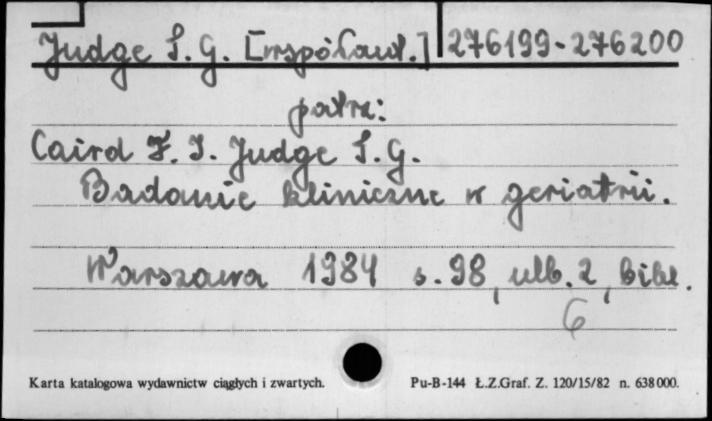 Judge T. G. [współaut.] 276199-276200
patrz:
Caird F. I. Judge T. G.
Badanie kliniczne w geriatrii.
Warszawa 1984 s. 98, ulb. 2, bibl.
6
Karta katalogowa wydawnictw ciągłych i zwartych. Pu-B-144 Ł.Z.Graf. Z. 120/15/82 n. 638000.